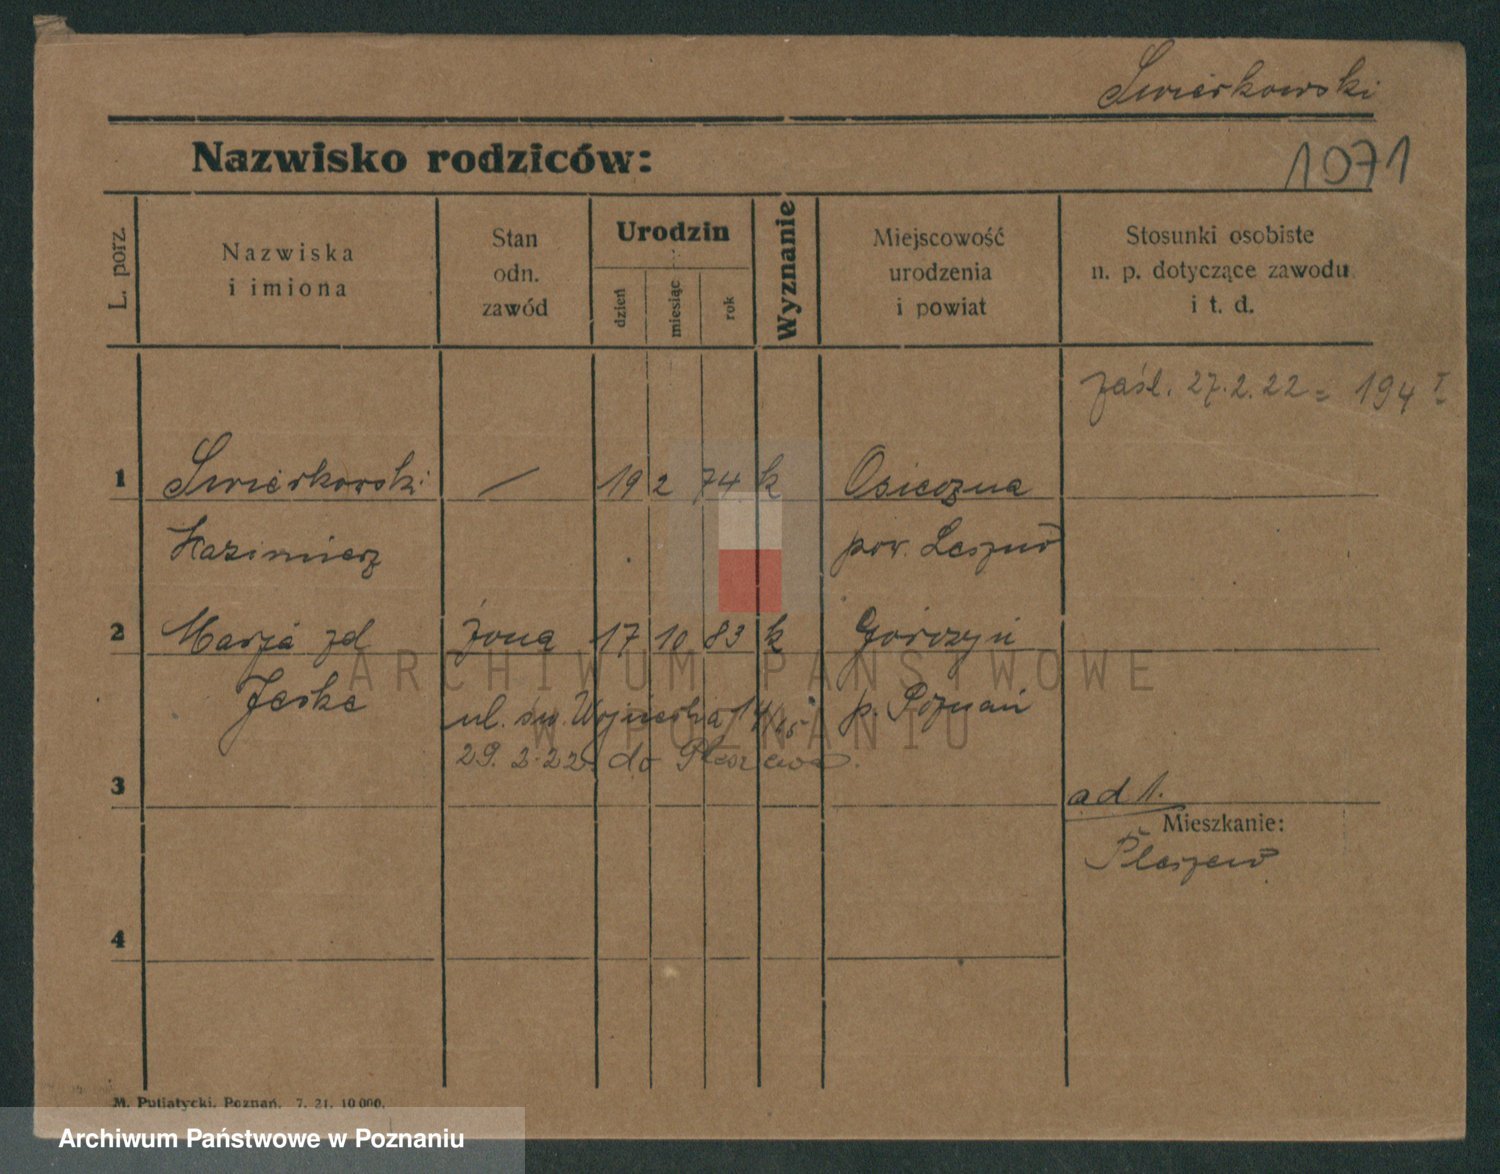 Swierkowski
Nazwisko rodziców:
1071
L. porz.
Nazwiska
i imiona
Stan
odn.
zawód
Urodzin
dzień
miesiąc
rok
Wyznanie
Miejscowość
urodzenia
i powiat
Stosunki osobiste
n. p. dotyczące zawodu
i t. d.
zaśl. 27.2.22 = 194 I
1 Swierkowski — 19 2 74 k Osieczna
Kazimierz pow. Leszno
2 Marja zd żona 17 10 83 k Górczyn
Jeske p. Poznań
ul. św. Wojciecha 14/15
29. 3. 22. do Pleszewa.
3
ad 1.
Mieszkanie:
Pleszew
4
M. Putiatycki, Poznań, 7. 21. 10 000.
ARCHIWUM PAŃSTWOWE
W POZNANIU
Archiwum Państwowe w Poznaniu